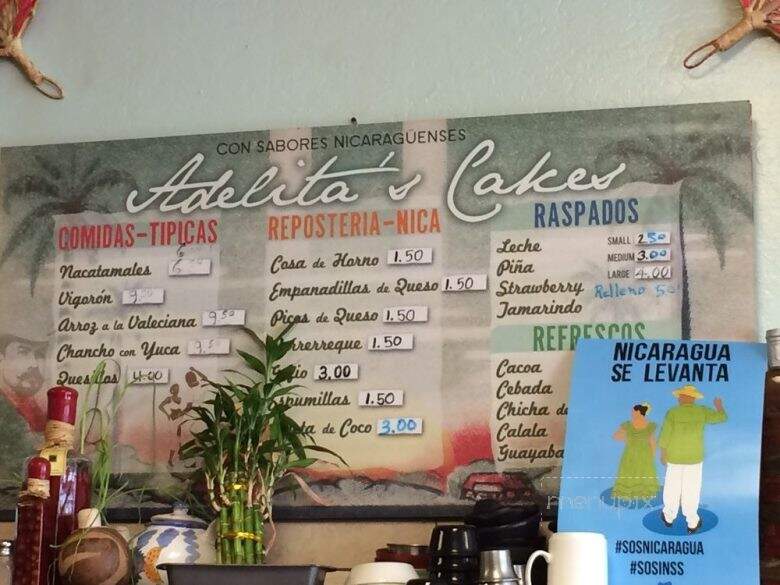 CON SABORES NICARAGÜENSES
Adelita's Cakes
COMIDAS-TIPICAS
Nacatamales
Vigorón
Arroz a la Valeciana 9.50
Chancho con Yuca
4.00
REPOSTERIA-NICA
Cosa de Horno 1.50
Empanadillas de Queso 1.50
Picos de Queso 1.50
1.50
3.00
1.50
de Coco 3.00
RASPADOS
Leche SMALL 2.50
Piña MEDIUM 3.00
Strawberry LARGE 4.00
Tamarindo Relleno 50
REFRESCOS
Cacoa
Cebada
Chicha de
Calala
Guayaba
NICARAGUA
SE LEVANTA
#SOSNICARAGUA
#SOSINSS
menupix